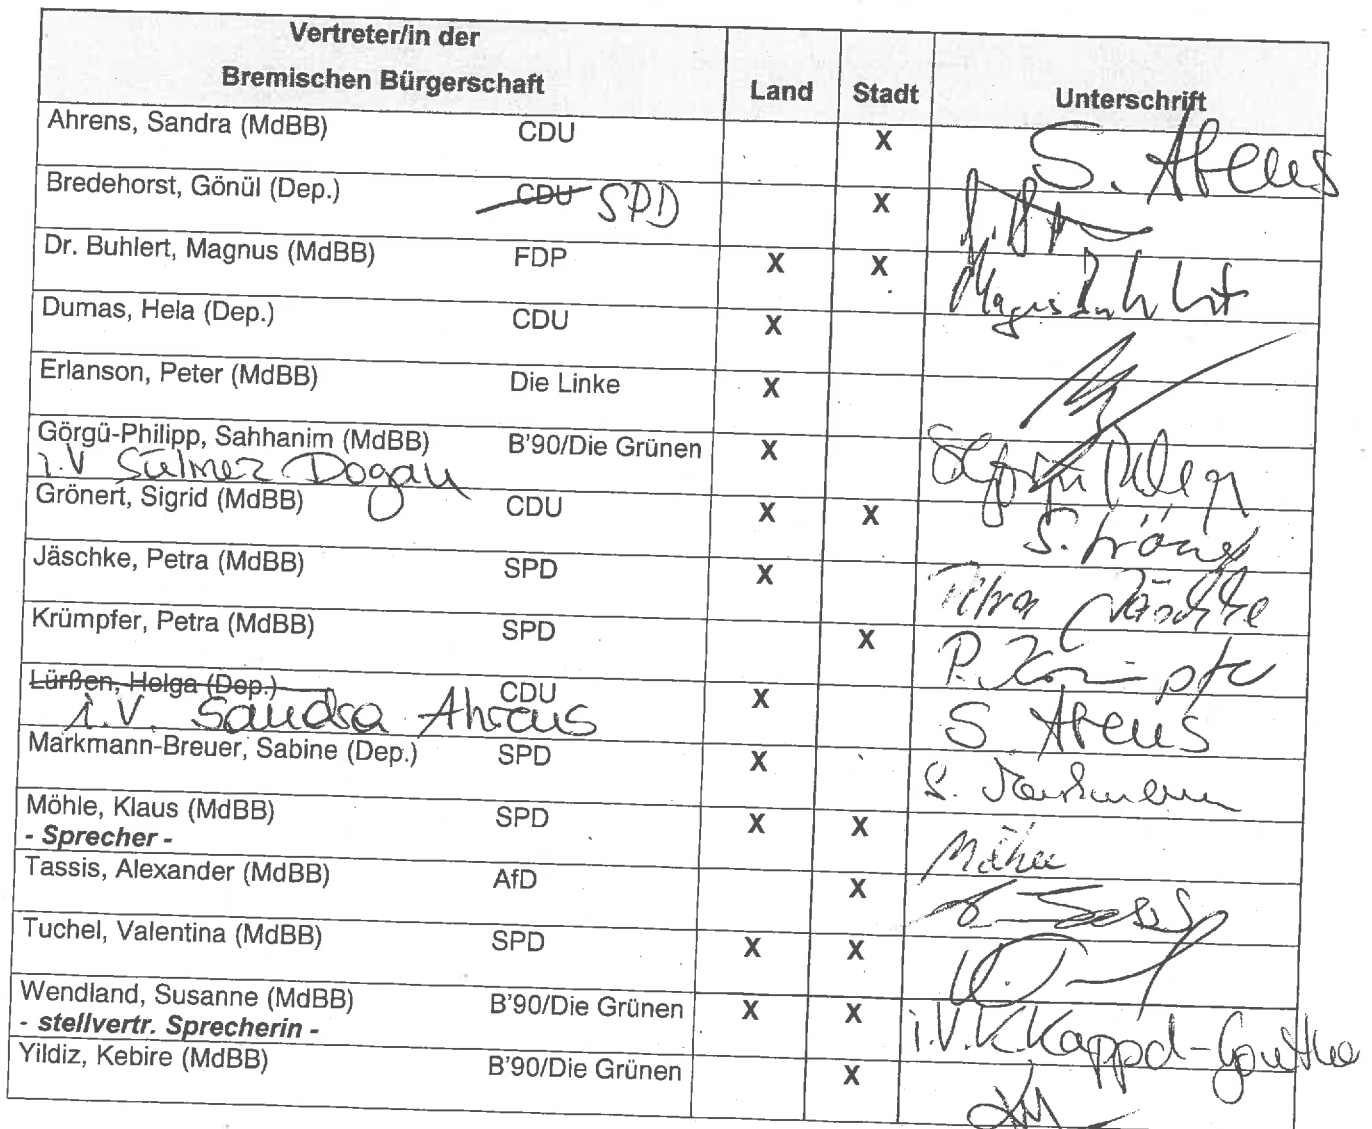 Vertreter/in der
Bremischen Bürgerschaft Land Stadt Unterschrift
Ahrens, Sandra (MdBB) CDU X S. Ahrens
Bredehorst, Gönül (Dep.) CDU SPD X
Dr. Buhlert, Magnus (MdBB) FDP X X Magnus Buhlert
Dumas, Hela (Dep.) CDU X
Erlanson, Peter (MdBB) Die Linke X
Görgü-Philipp, Sahhanim (MdBB) B'90/Die Grünen X
i.V Sülmez Dogan
Grönert, Sigrid (MdBB) CDU X X S. Grönert
Jäschke, Petra (MdBB) SPD X Petra Jäschke
Krümpfer, Petra (MdBB) SPD X P. Krümpfer
Lürßen, Helga (Dep.) CDU X S. Ahrens
i.V. Sandra Ahrens
Markmann-Breuer, Sabine (Dep.) SPD X S. Markmann
Möhle, Klaus (MdBB) SPD X X Möhle
- Sprecher -
Tassis, Alexander (MdBB) AfD X
Tuchel, Valentina (MdBB) SPD X X
Wendland, Susanne (MdBB) B'90/Die Grünen X X i.V. K. Kappert-Gonther
- stellvertr. Sprecherin -
Yildiz, Kebire (MdBB) B'90/Die Grünen X